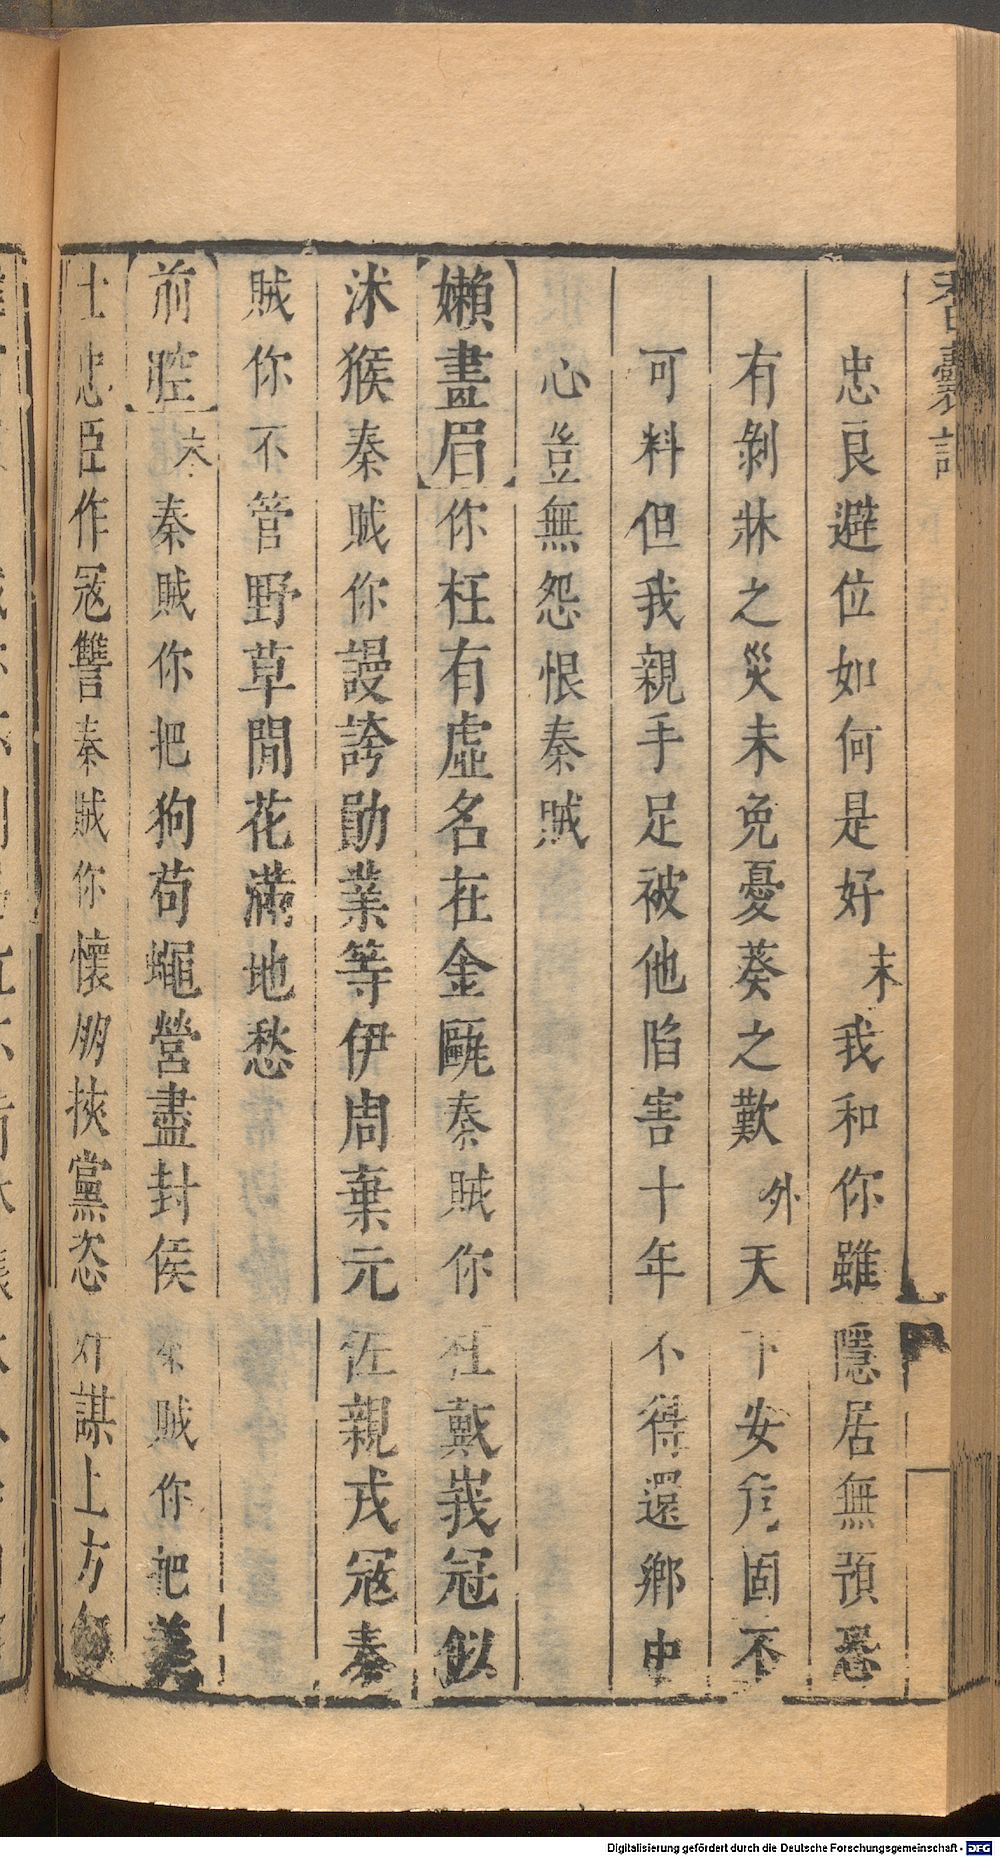 香囊記
忠良避位如何是好末我和你雖隱居無預恐
有剝牀之災未免憂葵之歎外天下安危固不
可料但我親手足被他陷害十年不得還鄉中
心豈無怨恨秦賊
嬾畫眉你枉有虛名在金甌秦賊你枉戴峩冠似
沐猴秦賊你謾誇勛業等伊周棄元佐親戎寇秦
賊你不管野草閒花滿地愁
前腔六秦賊你把狗苟蠅營盡封侯秦賊你把義
士忠臣作寇讐秦賊你懷朋挾黨恣奸謀上方
Digitalisierung gefördert durch die Deutsche Forschungsgemeinschaft - DFG